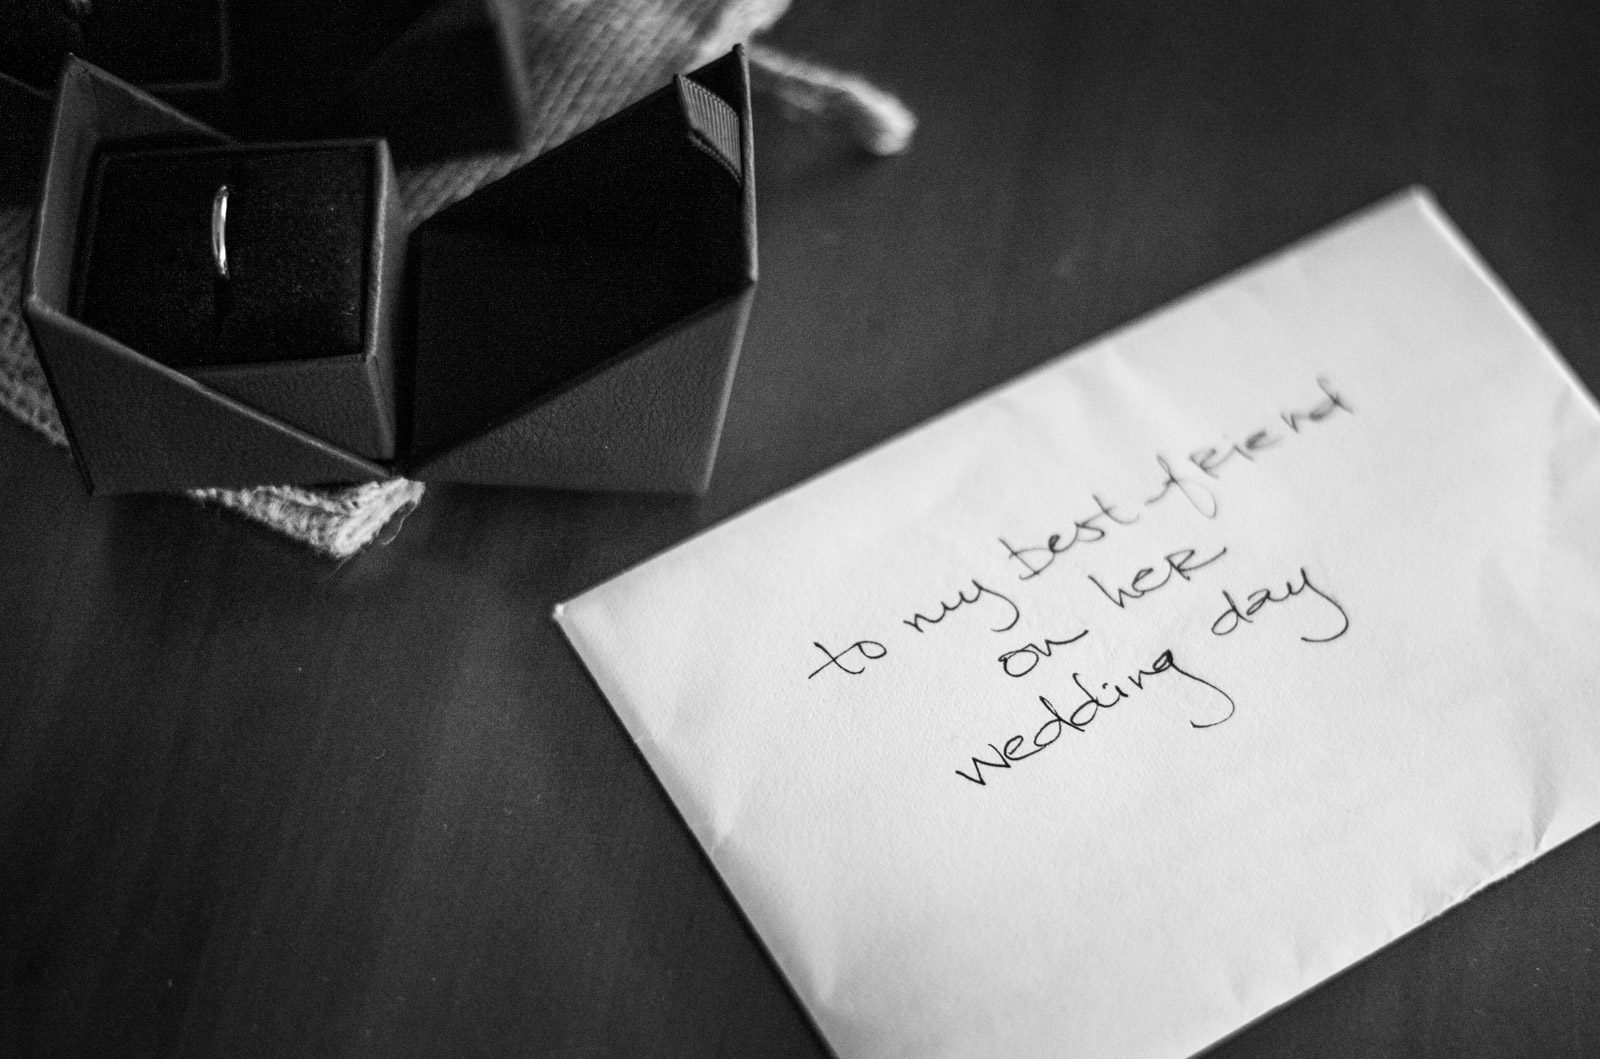 to my best friend
on her
wedding day